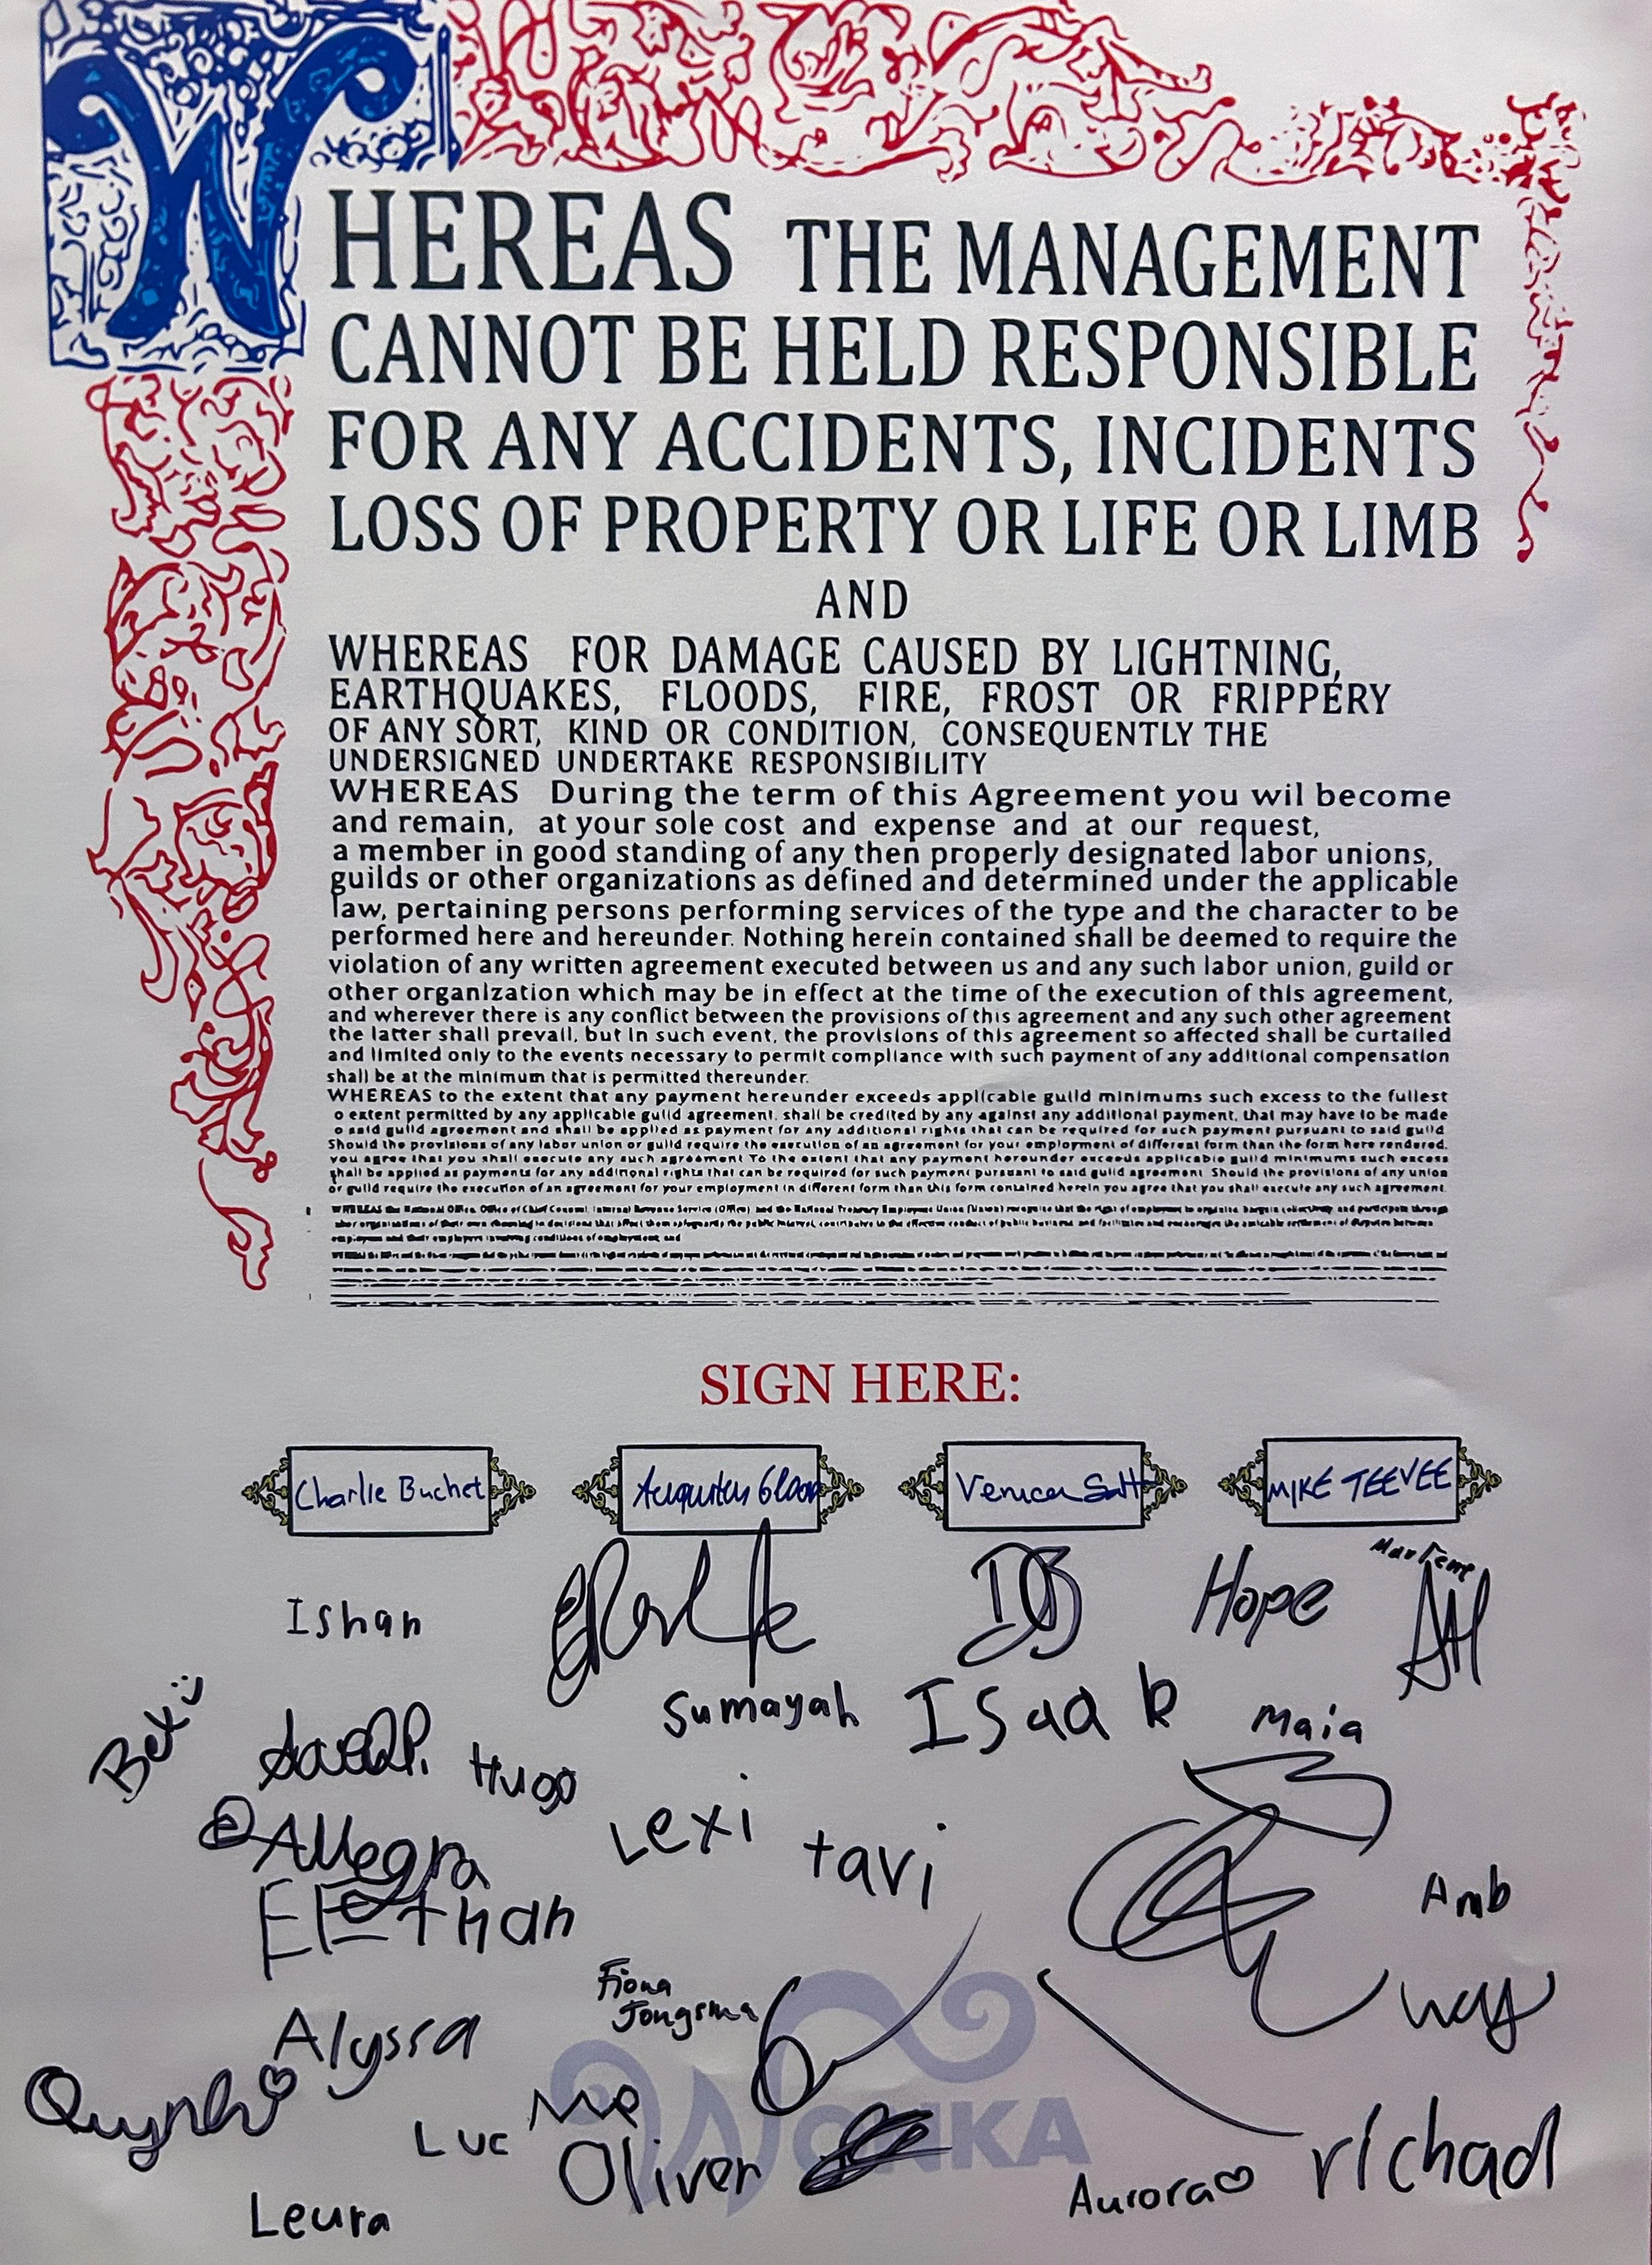 WHEREAS THE MANAGEMENT
CANNOT BE HELD RESPONSIBLE
FOR ANY ACCIDENTS, INCIDENTS
LOSS OF PROPERTY OR LIFE OR LIMB
AND
WHEREAS FOR DAMAGE CAUSED BY LIGHTNING,
EARTHQUAKES, FLOODS, FIRE, FROST OR FRIPPERY
OF ANY SORT, KIND OR CONDITION, CONSEQUENTLY THE
UNDERSIGNED UNDERTAKE RESPONSIBILITY
WHEREAS During the term of this Agreement you wil become
and remain, at your sole cost and expense and at our request,
a member in good standing of any then properly designated labor unions,
guilds or other organizations as defined and determined under the applicable
law, pertaining persons performing services of the type and the character to be
performed here and hereunder. Nothing herein contained shall be deemed to require the
violation of any written agreement executed between us and any such labor union, guild or
other organization which may be in effect at the time of the execution of this agreement,
and wherever there is any conflict between the provisions of this agreement and any such other agreement
the latter shall prevail, but in such event, the provisions of this agreement so affected shall be curtailed
and limited only to the events necessary to permit compliance with such payment of any additional compensation
shall be at the minimum that is permitted thereunder.
WHEREAS to the extent that any payment hereunder exceeds applicable guild minimums such excess to the fullest
o extent permitted by any applicable guild agreement, shall be credited by any against any additional payment, that may have to be made
o said guild agreement and shall be applied as payment for any additional rights that can be required for such payment pursuant to said guild
Should the provisions of any labor union or guild require the execution of an agreement for your employment of different form than the form here rendered,
you agree that you shall execute any such agreement To the extent that any payment hereunder exceeds applicable guild minimums such excess
shall be applied as payments for any additional rights that can be required for such payment pursuant to said guild agreement. Should the provisions of any union
or guild require the execution of an agreement for your employment in different form than this form contained herein you agree that you shall execute any such agreement.
WHEREAS the National Office, Office of Chief Counsel, Internal Revenue Service (Office) and the National Treasury Employees Union (Union) recognize that the right of employees to organize, bargain collectively and participate through
labor organizations of their own choosing in decisions that affect them safeguards the public interest, contributes to the effective conduct of public business and facilitates and encourages the amicable settlement of disputes between
employees and their employers involving conditions of employment, and
SIGN HERE:
Charlie Buchet
Augustus Gloop
Veruca Salt
MIKE TEEVEE
Marlene
Ishan
Hope
Sumayah
Isaak
Maia
Bex
Hugo
Allegra
Lexi
tavi
Ethan
Amb
Fiona
Jongsma
Alyssa
Quynh
Me
Luc
WONKA
Oliver
Aurora
richad
Leura